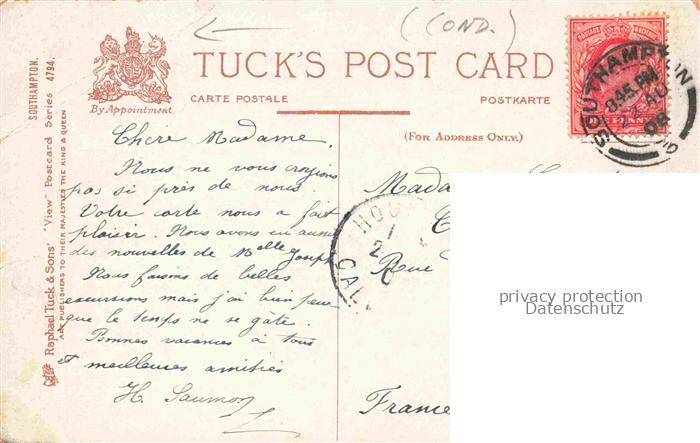 (COND.)
TUCK'S POST CARD
By Appointment.
CARTE POSTALE
POSTKARTE
(FOR ADDRESS ONLY.)
SOUTHAMPTON.
Raphael Tuck & Sons' "View" Postcard Series 4794.
ART PUBLISHERS TO THEIR MAJESTIES THE KING & QUEEN
POSTAGE & REVENUE
PENNY
SOUTHAMPTON
8.45 PM
AU
08
Chère Madame,
Nous ne vous croyions
pas si près de nous.
Votre carte nous a fait
plaisir. Nous avons eu aussi
des nouvelles de Melle Joseph
Nous faisons de belles
excursions mais j'ai bien peur
que le temps ne se gâte.
Bonnes vacances à tous
et meilleures amitiés
H. Saumon
Mada
Rue
France
HOU
CAL
privacy protection
Datenschutz